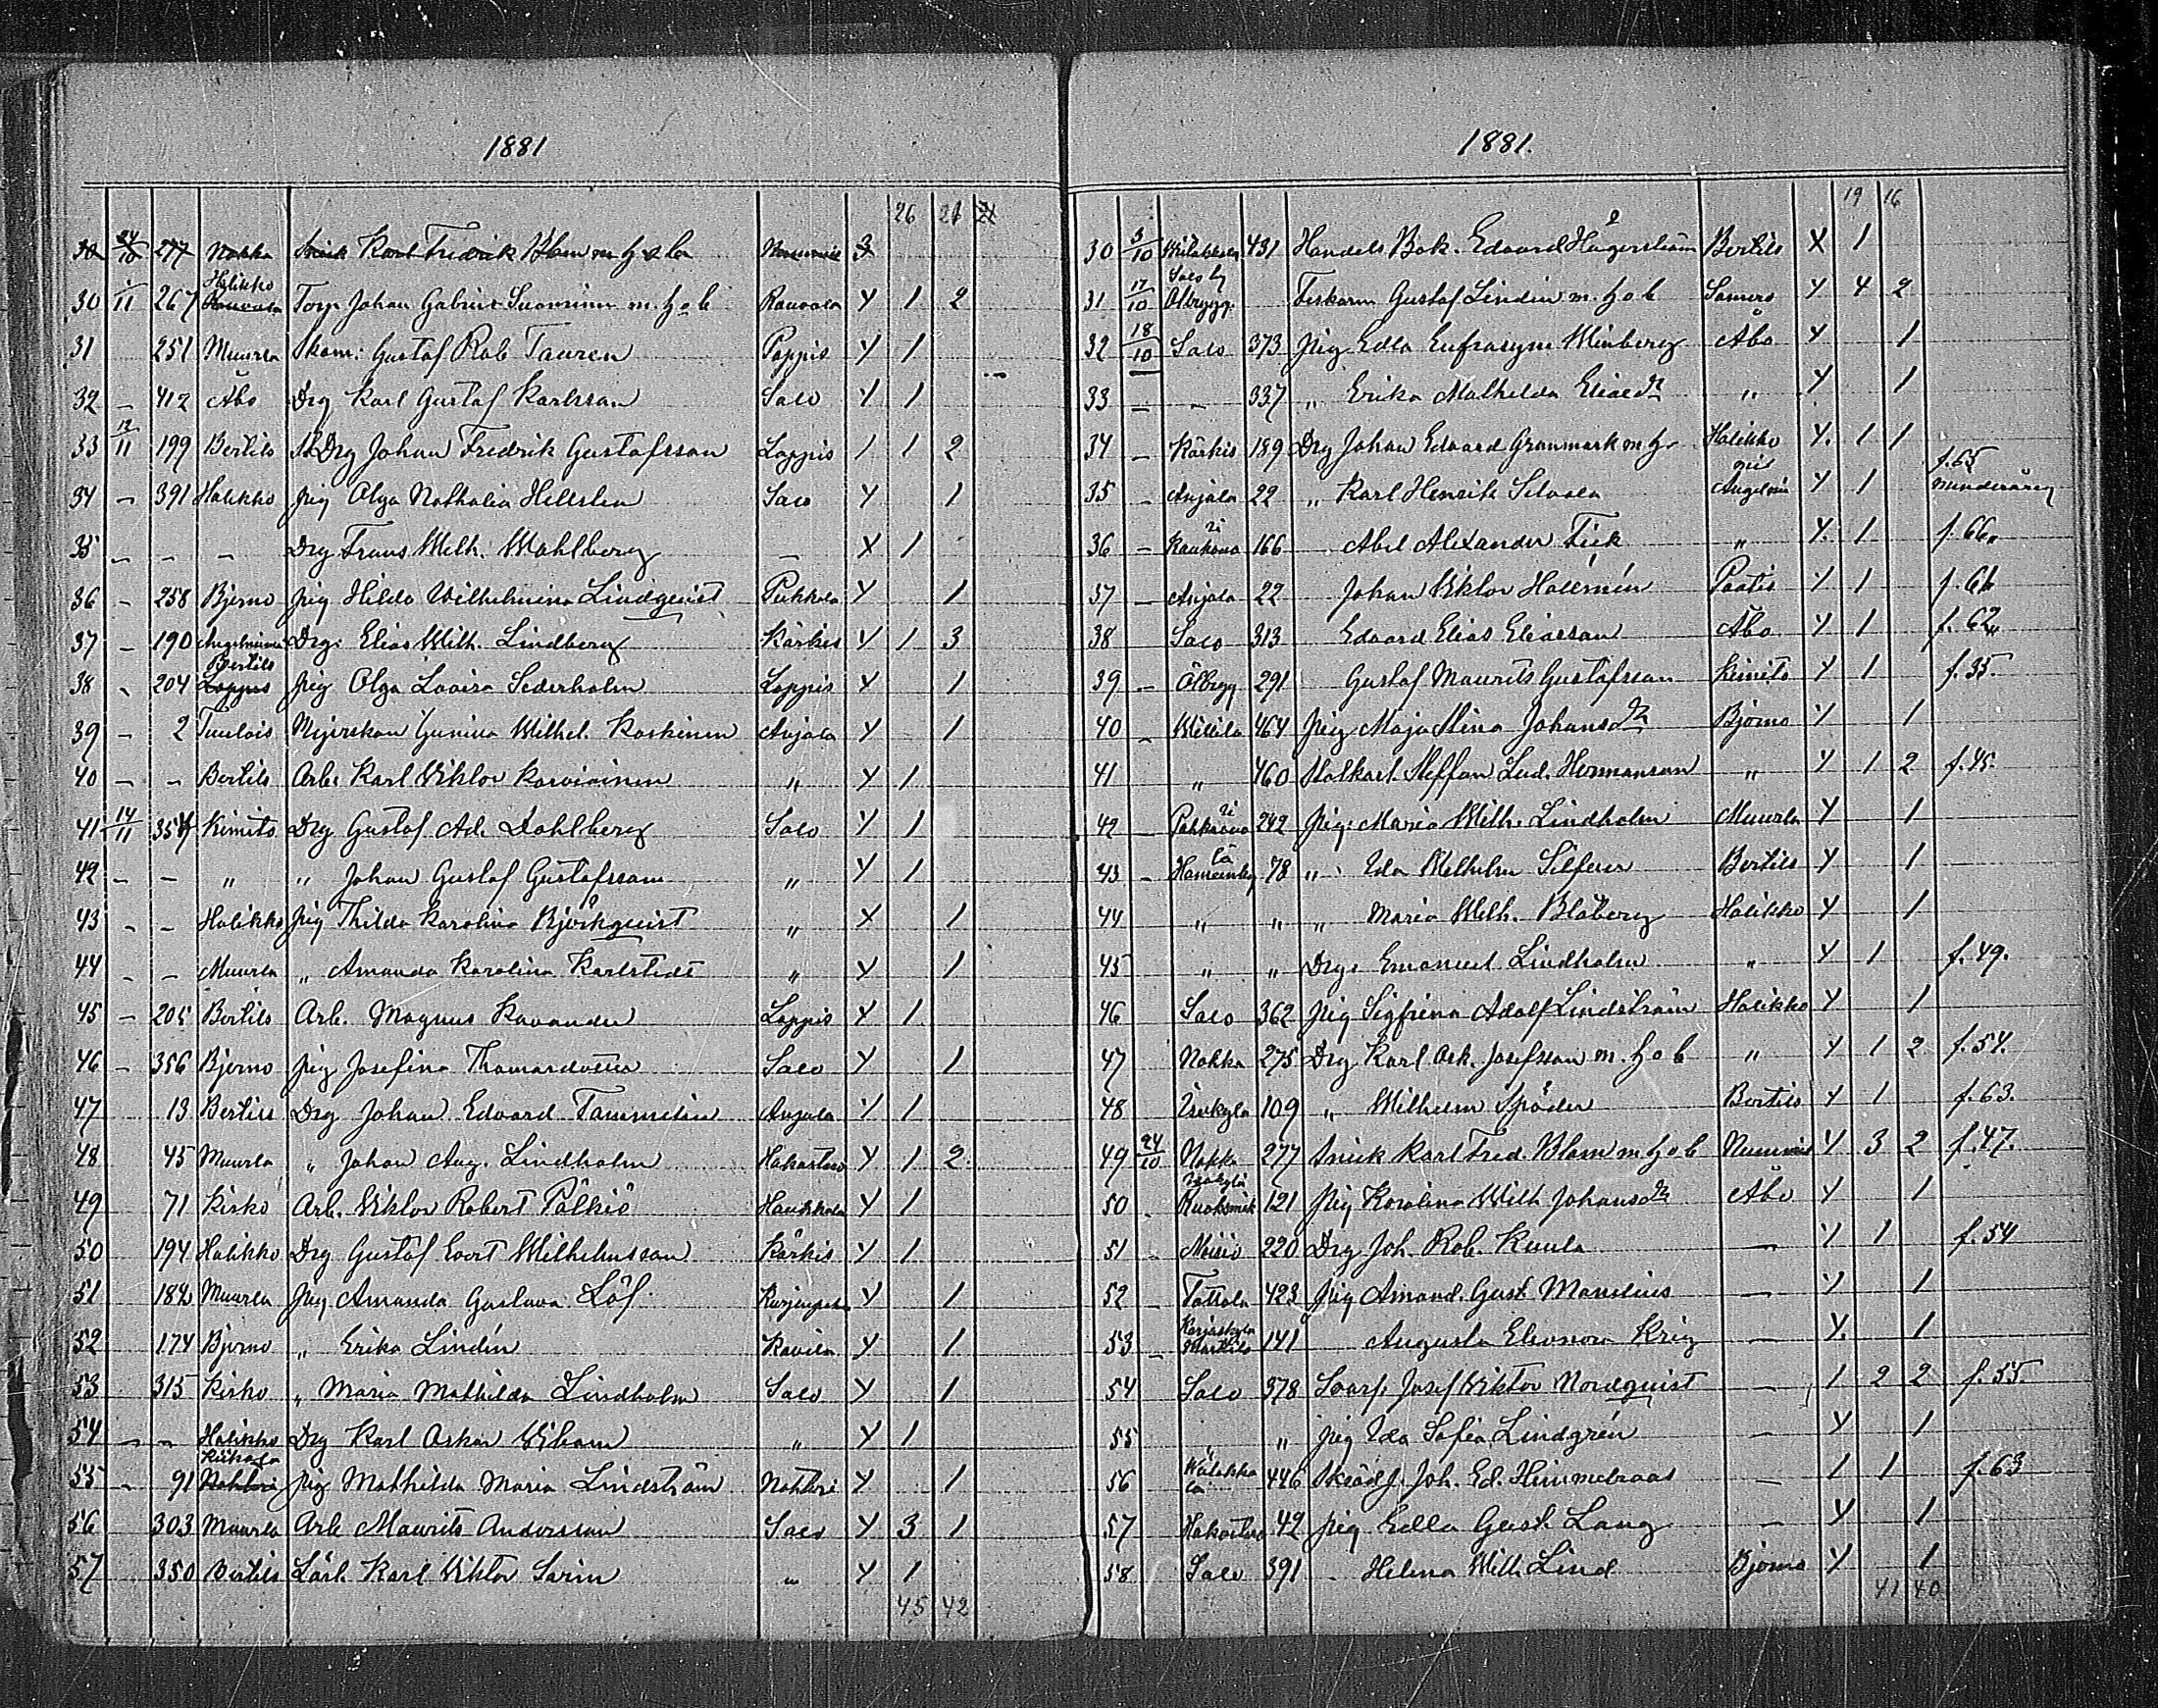 1881
26 21 21
30 24/10 277 Nokka Snick Karl Fredrik Blom m h o b Nummis 3
Halikko
30 1/11 267 Rauvola Torp Johan Gabriel Suominen m. h o b Rauvola Y 1 2
31 251 Muurla Skom: Gustaf Rob Tauren Pappis Y 1
32 – 412 Åbo Drg Karl Gustaf Karlsson Salo Y 1
33 12/11 199 Bertils St.Drg Johan Fredrik Gustafsson Lappis 1 1 2
34 – 391 Halikko Pig Olga Nathalia Hellsten Salo Y 1
35 – – – Drg Frans Wilh. Wahlberg – X 1
36 – 258 Bjerno Pig Hilda Wilhelmina Lindquist Pukkila Y 1
37 – 190 Angelniemi Drg: Elias Wilh. Lindberg Kärkis Y 1 3
Bertils
38 – 204 Lappis Pig Olga Lovisa Sederholm Lappis X 1
39 – 2 Tuulois Mejerskan Gunilla Wilhel. Koskinen Anjala Y 1
40 – – Bertils Arb. Karl Viktor Korvioinen „ Y 1
41 14/11 354 Kimito Drg Gustaf Ad. Dahlberg Salo Y 1
42 – – „ „ Johan Gustaf Gustafsson „ Y 1
43 – – Halikko Pig Thilda Karolina Björkquist „ X 1
44 – – Muurla „ Amanda Karolina Karlstedt „ Y 1
45 – 205 Bertils Arb. Magnus Kavander Lappis Y 1
46 – 356 Bjerno Pig Josefina Thomasdotter Salo Y 1
47 13 Bertils Drg Johan Edvard Tammelin Anjala Y 1
48 45 Muurla „ Johan Aug. Lindholm Hakostaro Y 1 2
49 71 Kisko Arb. Viktor Robert Pälkiö Haukkala Y 1
50 194 Halikko Drg Gustaf Evert Wilhelmsson Kärkis Y 1
51 182 Muurla Pig Amanda Gustava Löf Y 1
52 174 Bjerno „ Erika Lindén Kavila Y 1
53 315 Kisko „ Maria Mathilda Lindholm Salo Y 1
54 – – Halikko Drg Karl Oskar Viham „ Y 1
55 – 91 Nohteri Pig Mathilda Maria Lindström Nohteri Y 1
56 303 Muurla Arb Maurits Andersson Salo Y 3 1
57 350 Bertils Lärl. Karl Viktor Sarin „ Y 1
45 42
1881.
19 16
30 3/10 431 Handels Bok. Edvard Hägerström Bertils X 1
Salo by
31 17/10 Ölbrygg. Fiskaren Gustaf Lindén m. h o b Somero Y 4 2
32 18/10 Salo 373 Pig Edla Eufrosyne Winberg Åbo Y 1
33 – – 337 „ Erika Mathilda Eliaedr „ Y 1
34 – Kärkis 189 Drg Johan Edvard Granmark m h Halikko Y. 1 1
35 – Anjala 22 „ Karl Henrik Silvola Angelnie Y 1 f. 65 minderårig
36 – Kaukova 166 Abel Alexander Fick „ Y. 1 f. 66„
37 – Anjala 22 Johan Viktor Hallmén Paatis Y 1 f. 61
38 Salo 313 Edvard Elias Eliasson Åbo Y 1 f. 62„
39 – Ölbrgg 291 Gustaf Maurits Gustafsson Kimito Y 1 f. 35.
40 – Willila 464 Pig Maja Stina Johansdr Bjerno Y 1
41 „ 460 Stalkarl Steffan Lud. Hermansson „ Y 1 2 f. 45.
42 – 242 Pig: Maria Wilh. Lindholm Muurla Y 1
43 – 78 „ Ida Wilhelm Silfver Bertils Y 1
44 „ „ „ Maria Wilh. Blåberg Halikko Y 1
45 „ „ Drg: Emanuel Lindholm „ Y 1 f. 49.
46 Salo 362 Pig Sigfrina Adolf Lindström Halikko Y 1
47 Nokka 275 Drg Karl Osk. Josefsson m. h o b „ Y 1 2 f. 54.
48 Isokyla 109 „ Wilhelm Spåder Bertils Y 1 f. 63.
49 24/10 Nokka 277 Snick Karl Fred. Blom m h o b Nummis Y 3 2 f. 47.
Isokylä
50 121 Pig Karolina Wilh Johansdr Åbo Y 1
51 – Moisio 220 Drg Joh. Rob. Kuula — Y 1 f. 54
52 – Tottola 423 Pig Amand. Gust. Manelius — Y 1
53 – 141 Augusta Eleonora Krig — Y. 1
54 Salo 378 Svarf: Josef Viktor Nordquist — 1 2 2 f. 55.
55 „ „ Pig Ida Sofia Lindgrén — Y 1
56 446 Skrädd. Joh. Ed. Himmelroos — 1 1 f. 63
57 Hakostaro 42 Pig Edla Gust. Lang — Y 1
58 Salo 391 Helena Wilh Lind Bjerno Y 1
41 40